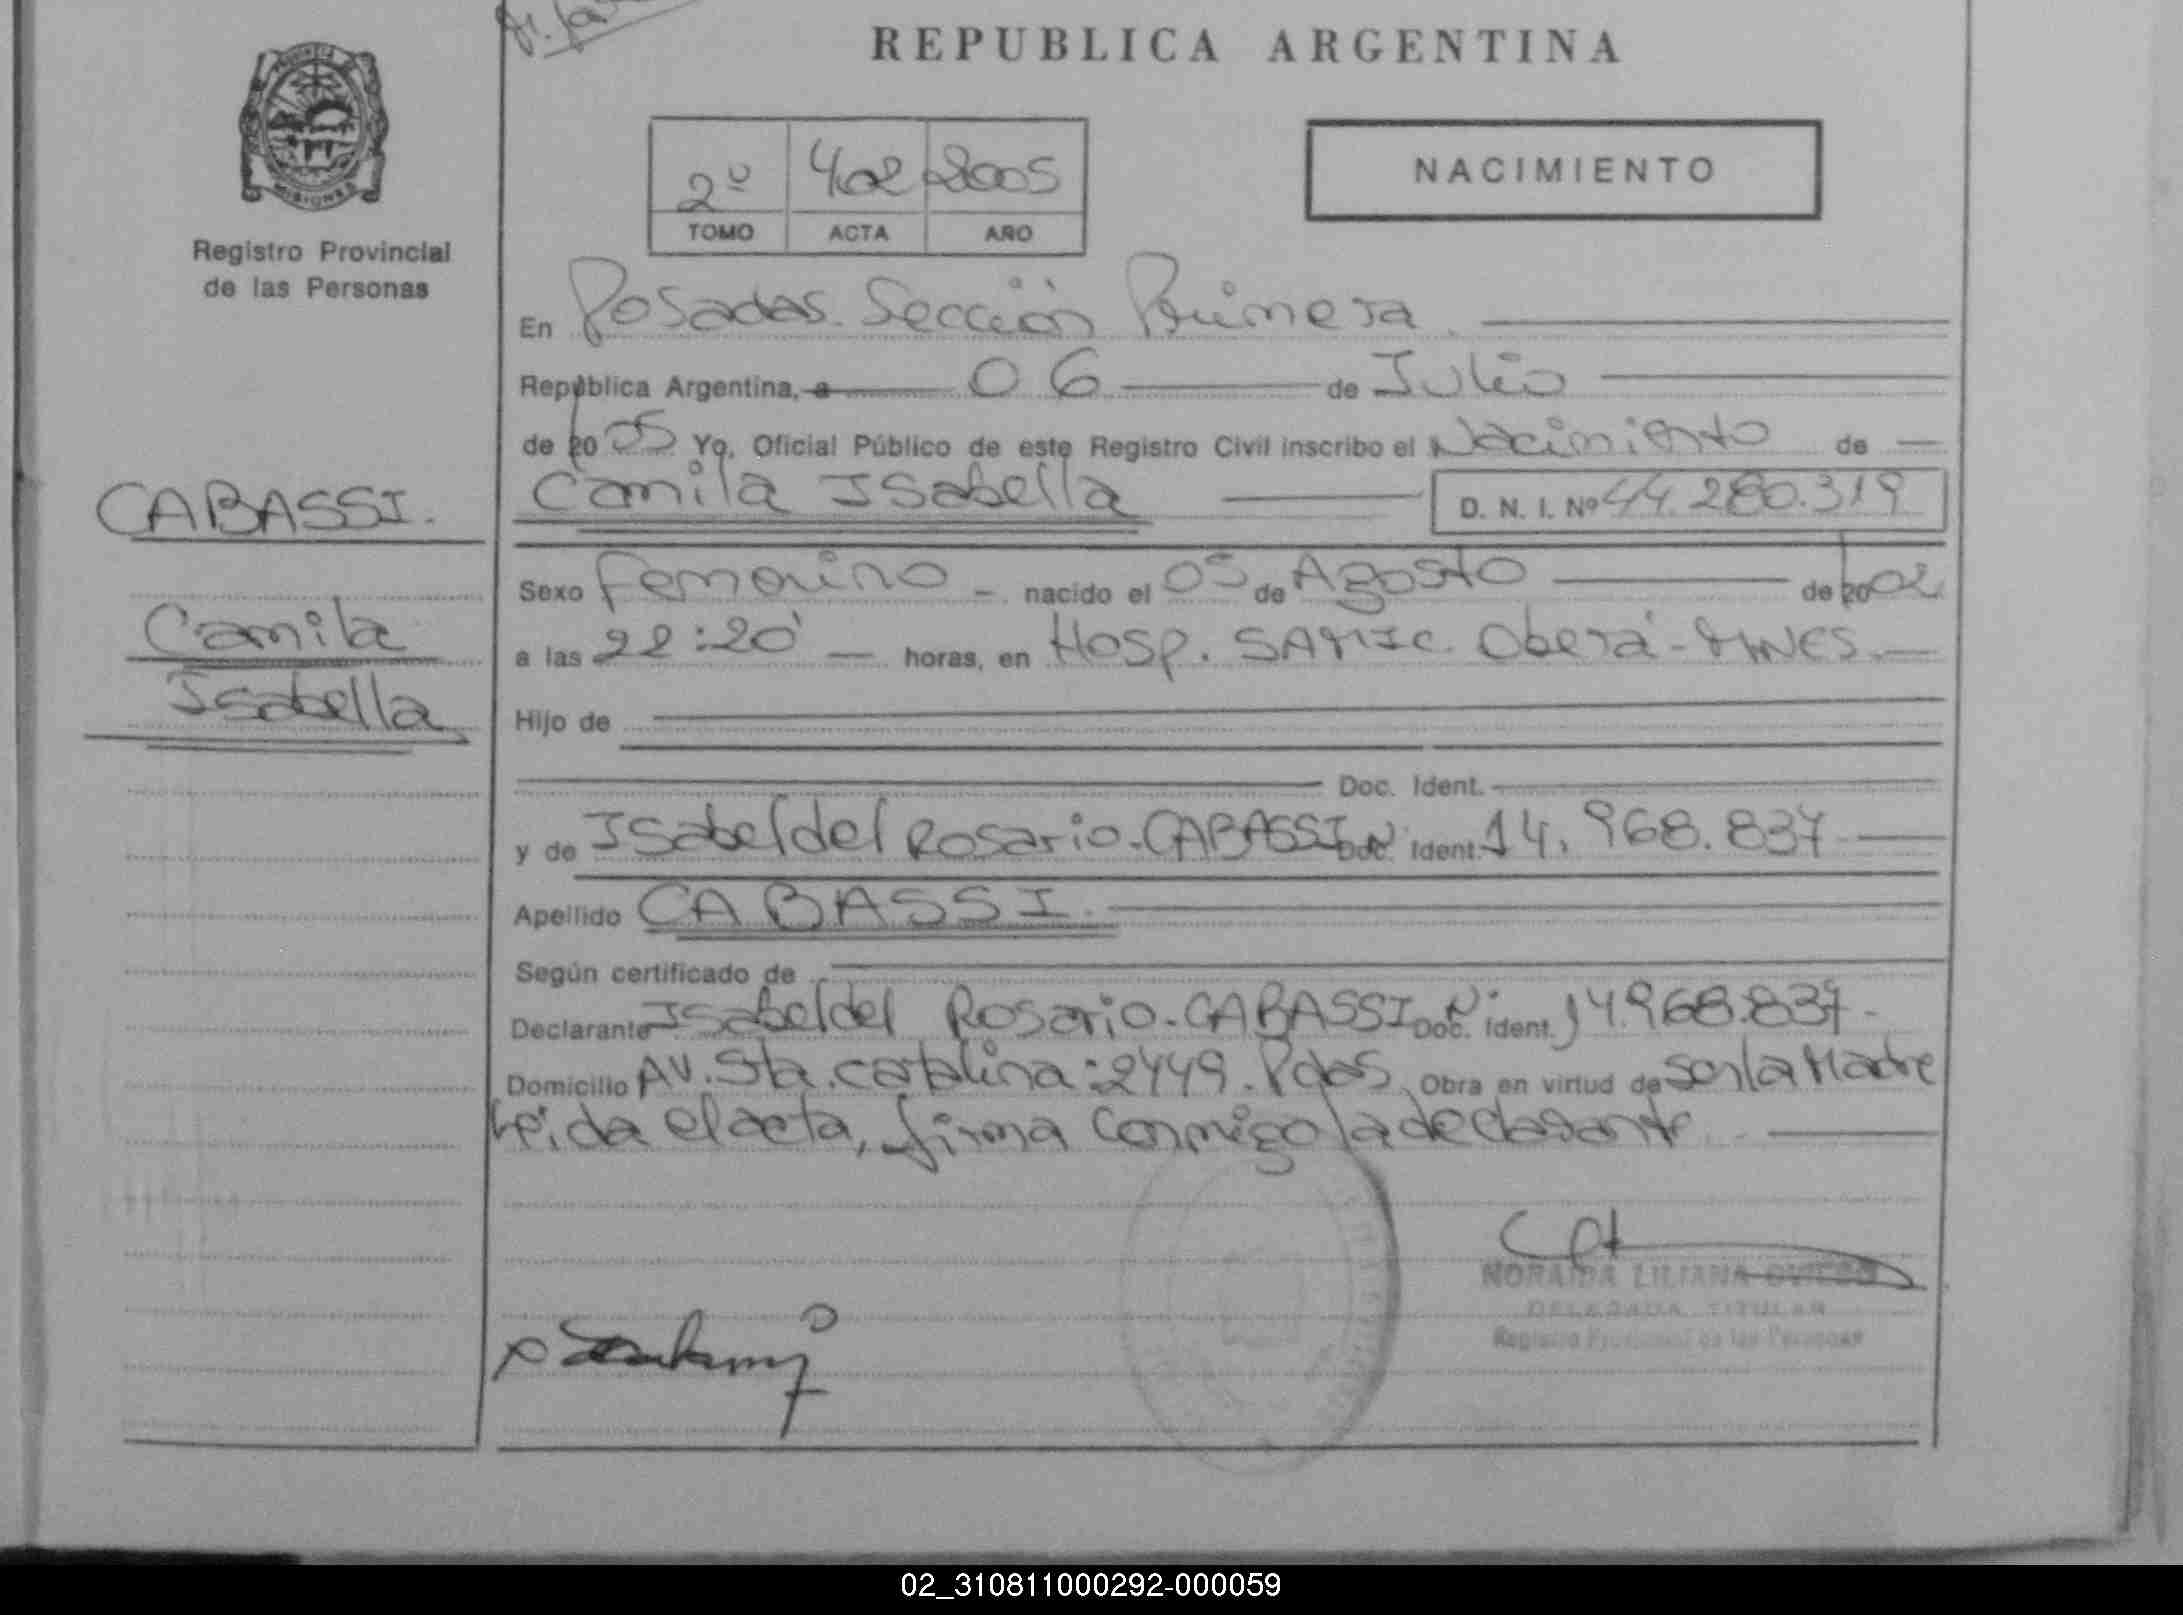 REPUBLICA ARGENTINA
MISIONES
Registro Provincial
de las Personas
2º 402 2005
TOMO ACTA AÑO
NACIMIENTO
En Posadas. Sección Primera.
República Argentina, a 06 de Julio
de 20 05 Yo, Oficial Público de este Registro Civil inscribo el Nacimiento de
CABASSI.
Camila
Isabella
Camila Isabella D. N. I. Nº 44.280.319
Sexo Femenino - nacido el 05 de Agosto de 2002
a las 22:20' horas, en Hosp. SAMIC. Oberá - MNES.
Hijo de
Doc. Ident.
y de Isabel del Rosario. CABASSI Doc. Ident. Nº 14.968.837
Apellido CABASSI.
Según certificado de
Declarante Isabel del Rosario. CABASSI Doc. Ident. Nº 14.968.837-
Domicilio AV. Sta. Catalina: 2449. Pdas. Obra en virtud de ser la Madre
Leída el acta, firma conmigo la declarante.
NORAIDA LILIANA OVIEDO
DELEGADA TITULAR
Registro Provincial de las Personas
02_310811000292-000059